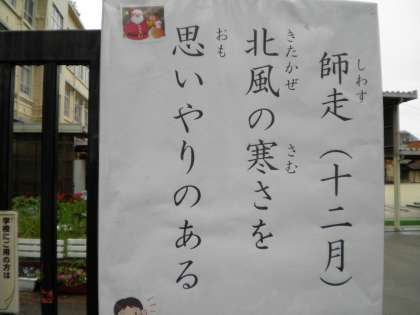 師走（十二月）
しわす
北風の寒さを
きたかぜ さむ
思いやりのある
おも
学校にご用の方は